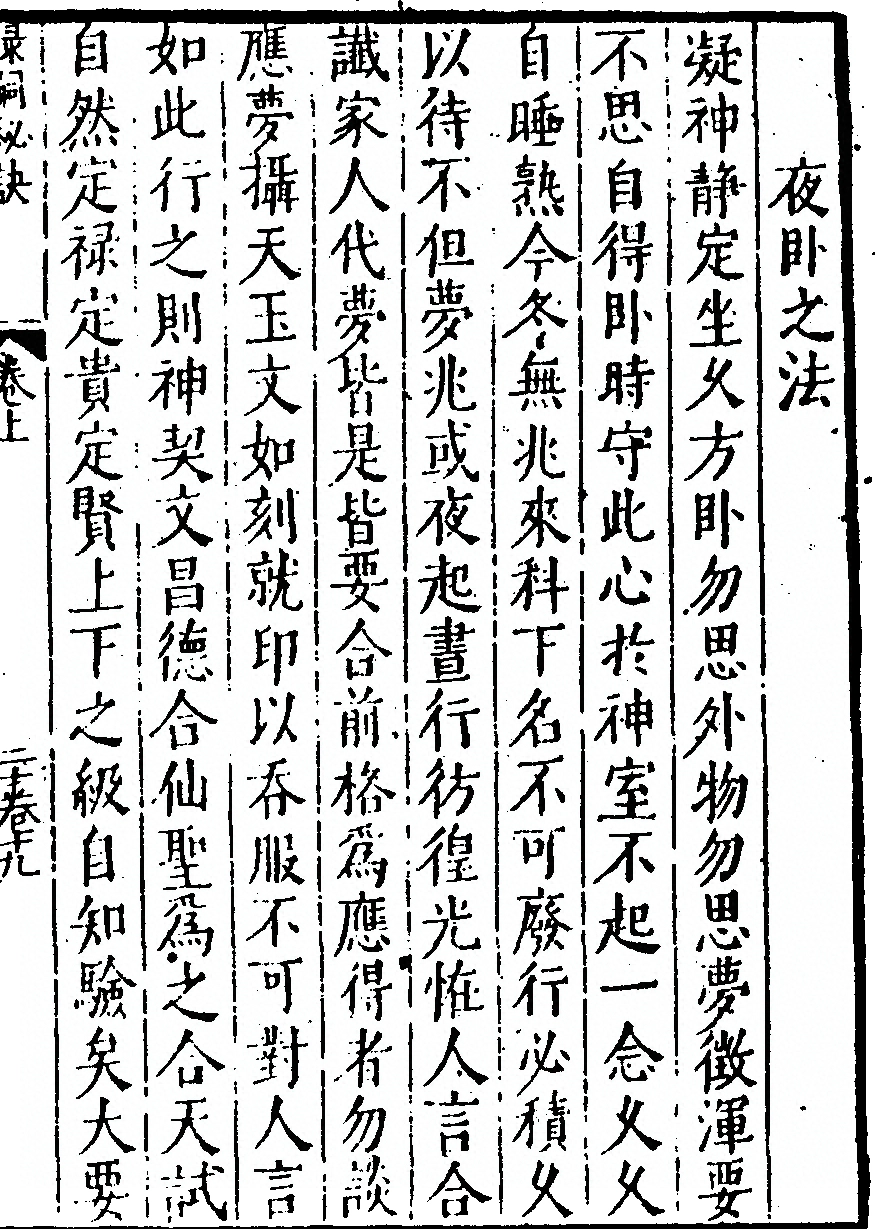 夜卧之法
凝神静定坐乆方卧勿思外物勿思夢徴渾要
不思自得卧時守此心扵神室不起一念乆乆
自睡熟今冬無兆來科下名不可廢行必積乆
以待不但夢兆或夜起晝行彷徨光恠人言合
讖家人代夢皆是皆要合前格爲應得者勿談
應夢攝天玉文如刻就印以吞服不可對人言
如此行之則神契文昌德合仙聖爲之合天試
自然定禄定貴定賢上下之級自知驗矣大要
祠秘訣
卷上
二十卷十九